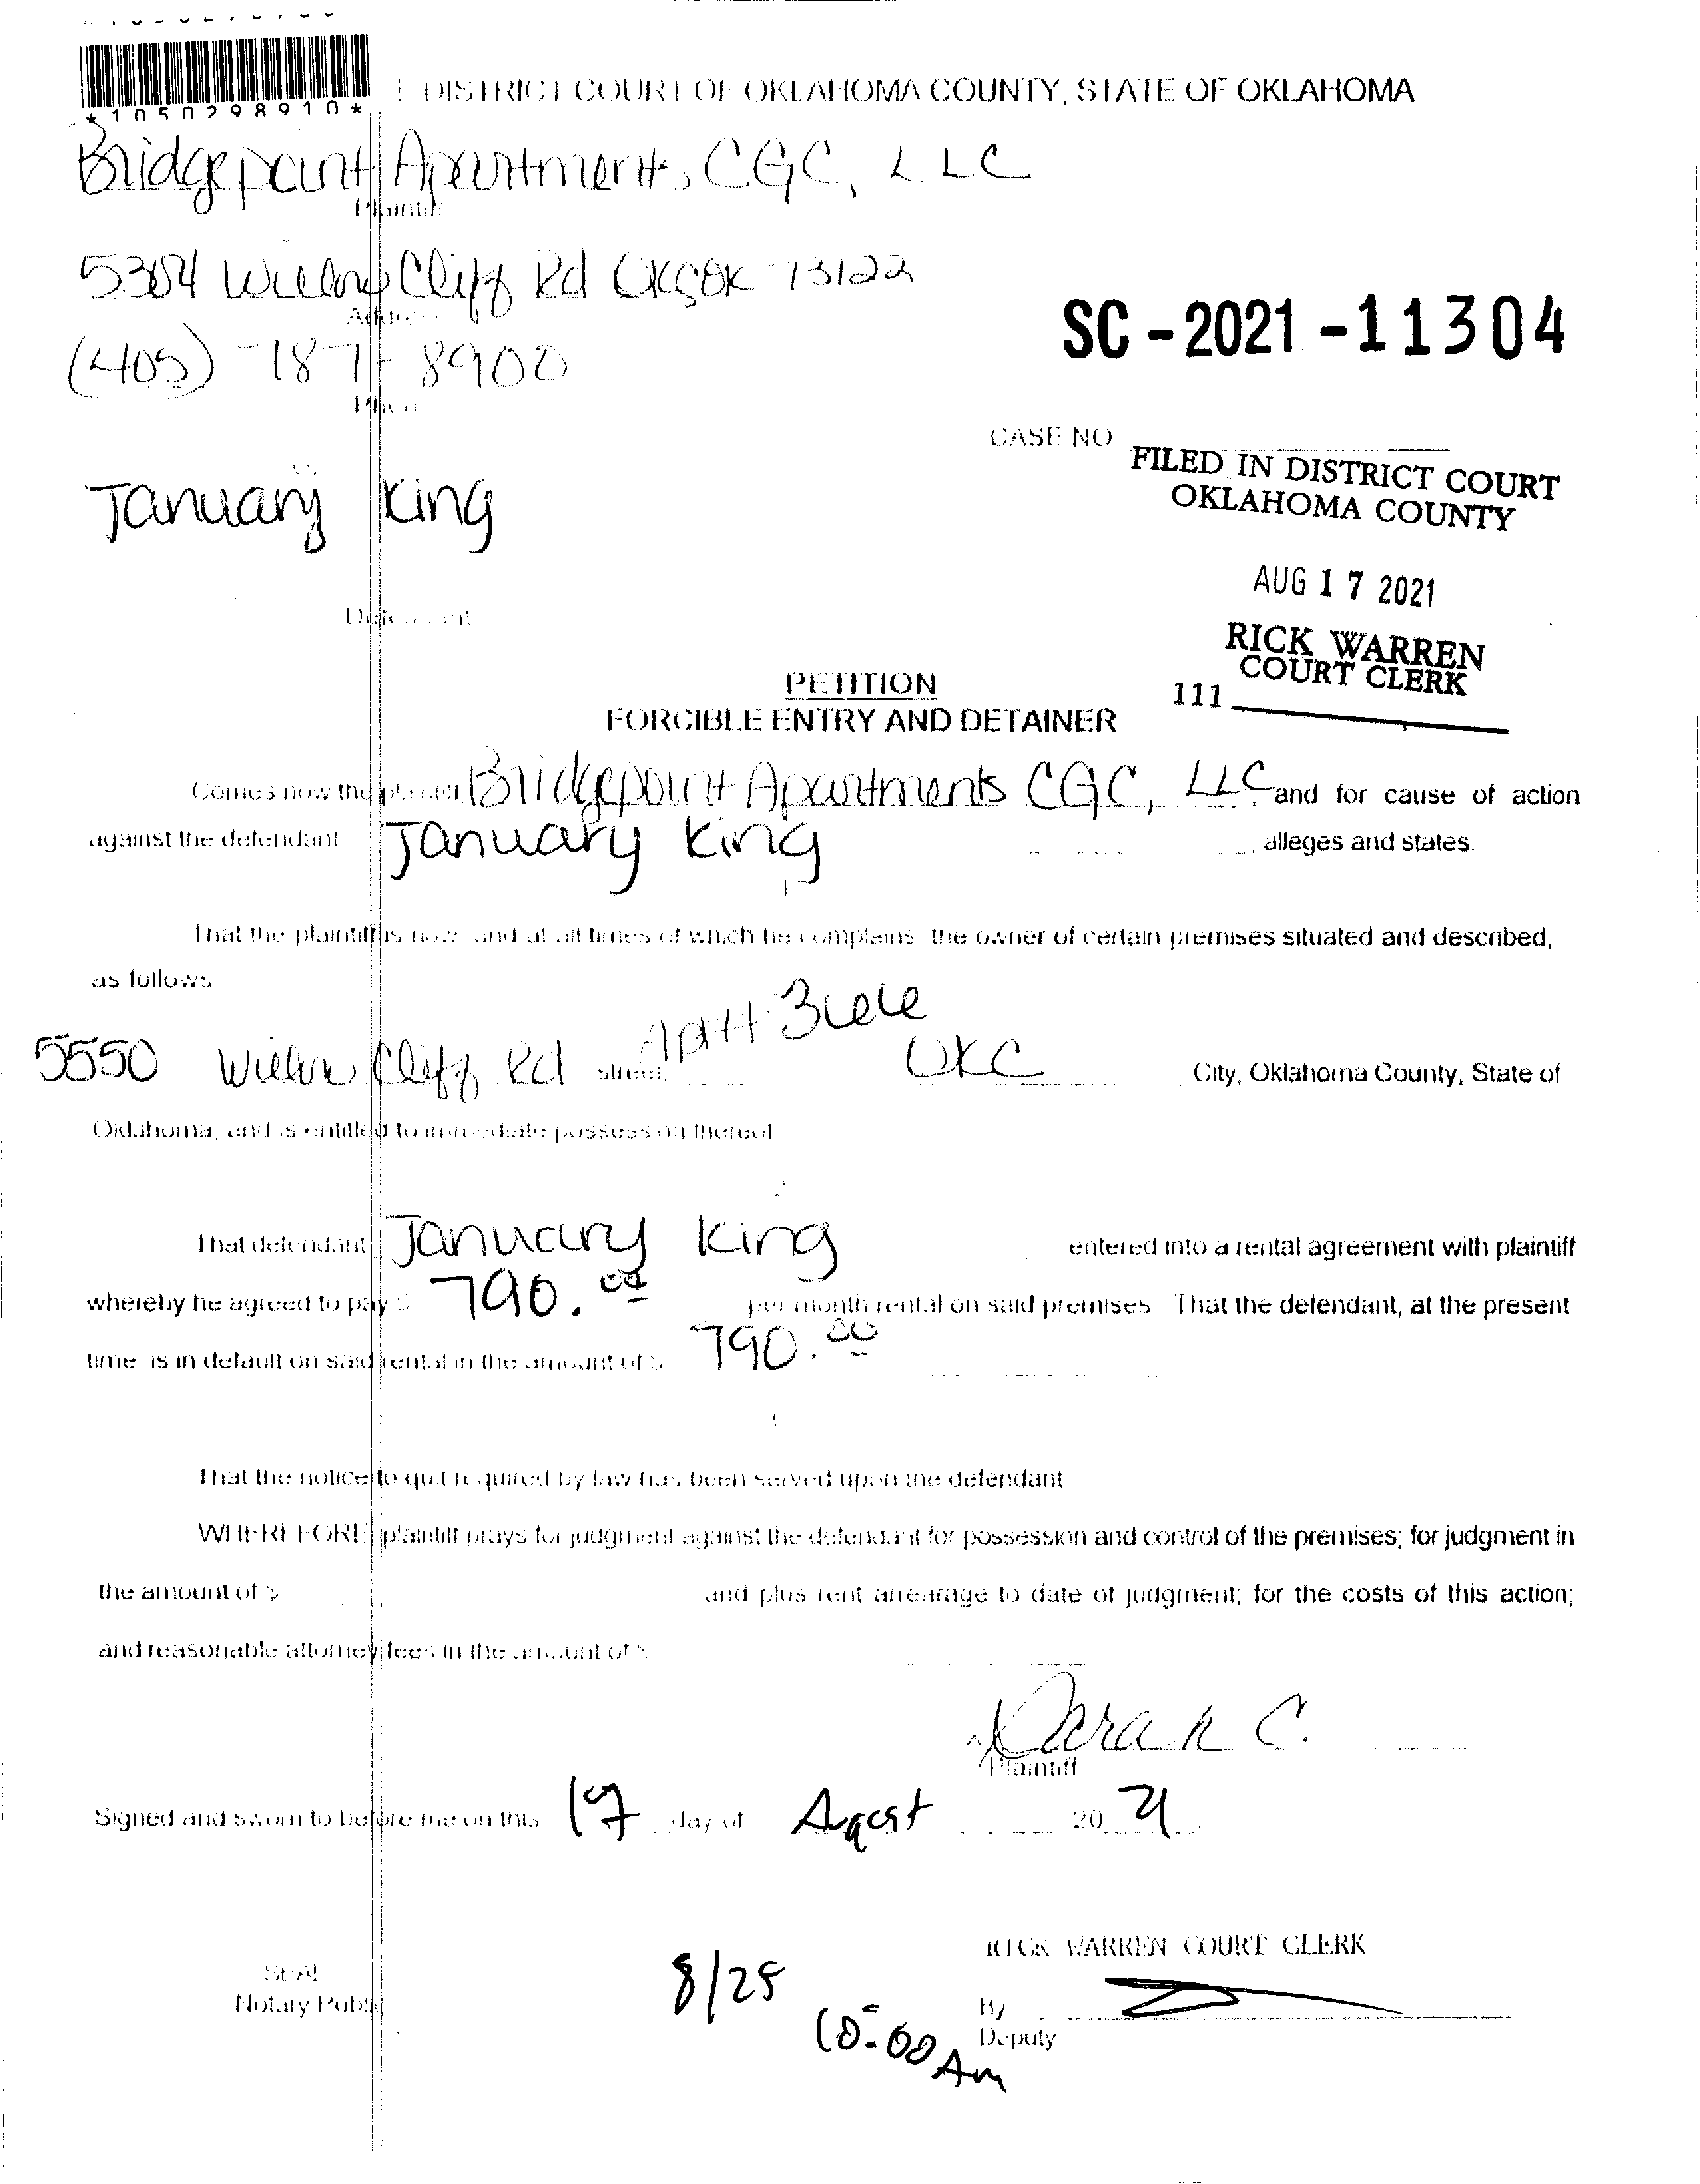 *1050298910*
DISTRICT COURT OF OKLAHOMA COUNTY, STATE OF OKLAHOMA
Bridgepoint Apartments, CGC, LLC
Plaintiff
5304 Willow Cliff Rd OKC OK 73122
Address
(405) 787-8900
Phone
SC-2021-11304
CASE NO
FILED IN DISTRICT COURT
OKLAHOMA COUNTY
January King
AUG 17 2021
Defendant
RICK WARREN
COURT CLERK
111
PETITION
FORCIBLE ENTRY AND DETAINER
Comes now the plaintiff Bridgepoint Apartments CGC, LLC and for cause of action
against the defendant January King alleges and states.
That the plaintiff is now and at all times of which he complains the owner of certain premises situated and described,
as follows
Apt#
5550 Willow Cliff Rd street, OKC City, Oklahoma County, State of
Oklahoma, and is entitled to immediate possession thereof
That defendant January King entered into a rental agreement with plaintiff
whereby he agreed to pay $ 790.00 per month rental on said premises That the defendant, at the present
time is in default on said rental in the amount of $ 790.00
That the notice to quit required by law has been served upon the defendant
WHEREFORE plaintiff prays for judgment against the defendant for possession and control of the premises; for judgment in
the amount of $ and plus rent arrearage to date of judgment; for the costs of this action;
and reasonable attorney fees in the amount of $
C.
Plaintiff
Signed and sworn to before me on this 17 day of August 20 21
RICK WARREN COURT CLERK
Seal
Notary Public
8/25
10:00 Am
By
Deputy